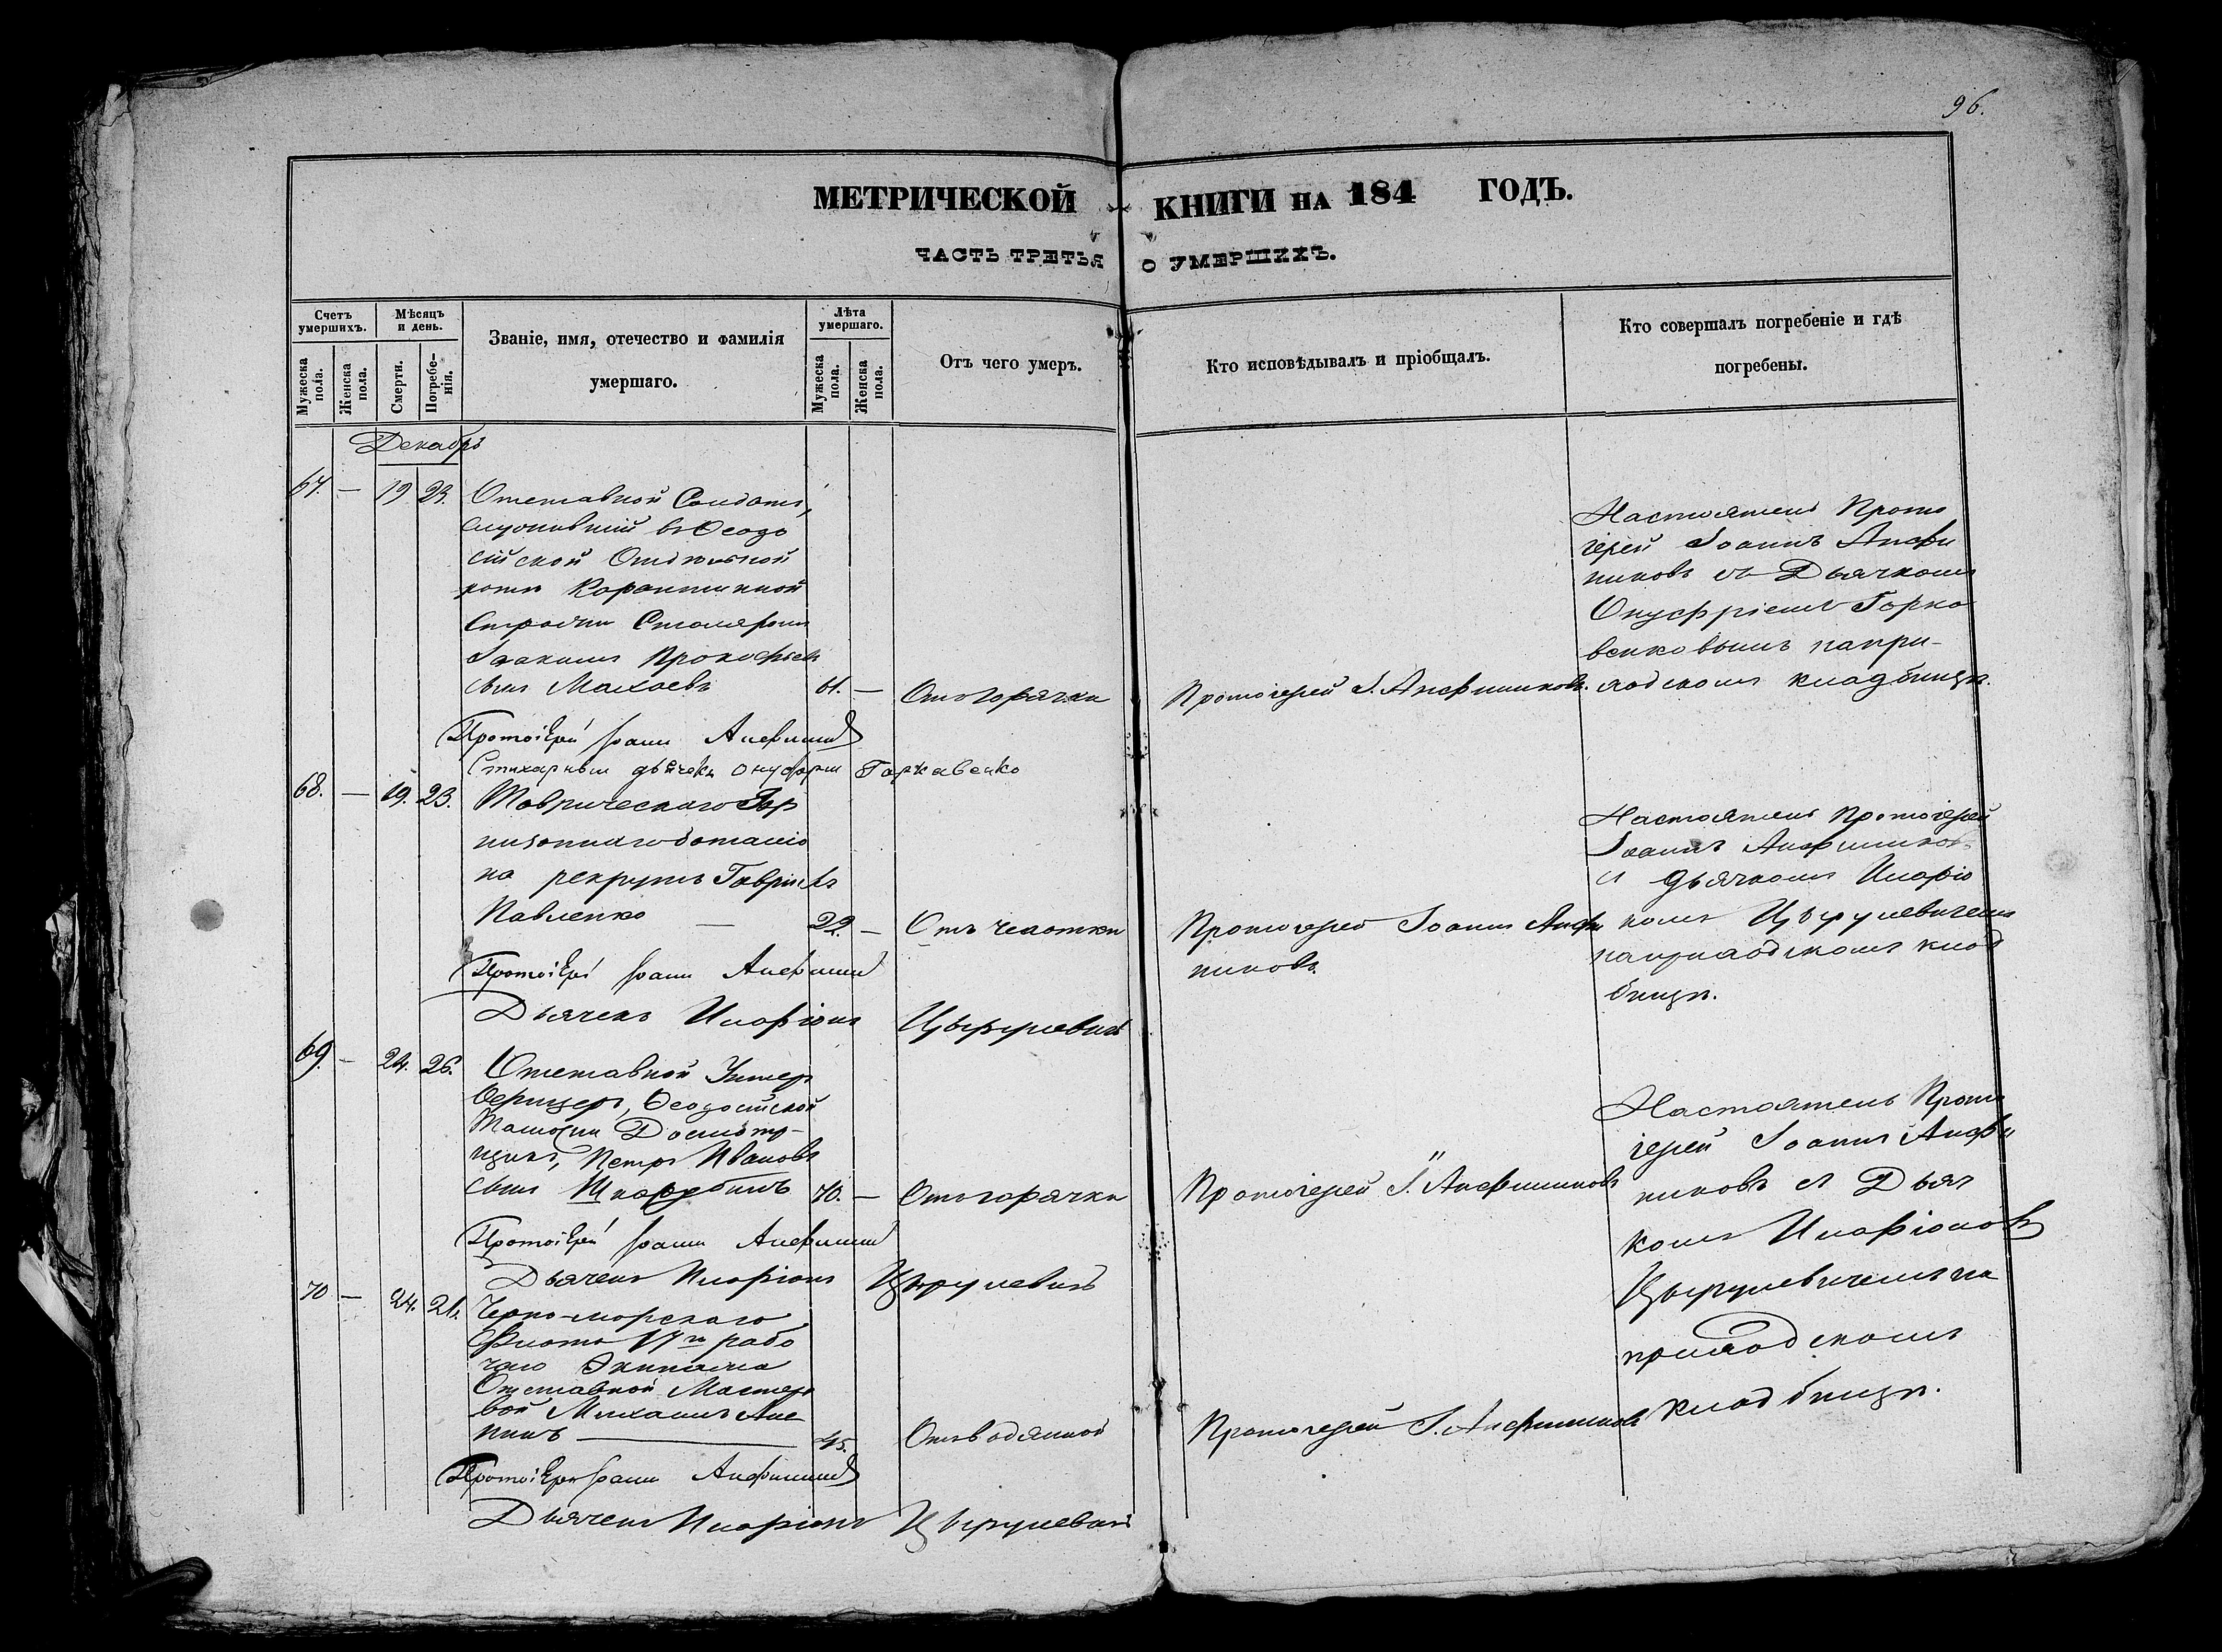 96.
МЕТРИЧЕСКОЙ КНИГИ НА 184 ГОДЪ.
ЧАСТЬ ТРЕТЬЯ О УМЕРШИХЪ.
Счетъ умершихъ.
Мужеска пола.
Женска пола.
Мѣсяцъ и день.
Смерти.
Погребенія.
Званіе, имя, отечество и фамилія
умершаго.
Лѣта умершаго.
Мужеска пола.
Женска пола.
Отъ чего умеръ.
Кто исповѣдывалъ и пріобщалъ.
Кто совершалъ погребеніе и гдѣ
погребены.
Декабрь
67. — 19 23. Отставной Солдатъ,
служившій въ Ѳеодо
сійской
ротѣ Карантинной
Стражи
Іоакимъ Прокофьевъ
сынъ 61. — Отъ горячки
Протоіерей І. Анфиниковъ.
Настоятель Прото
іерей Іоаннъ Анфи
никовъ съ Дьячкомъ
Онуфріемъ Горка
венковымъ на при-
ходскомъ кладбищѣ.
Протоіерей Іоаннъ
Стихарный дьячекъ Онуфрий Горкавенко
68. — 19. 23. Таврическаго Гар
низоннаго баталіо
на рекрутъ Гавріилъ
Павленко — 22. — Отъ чахотки
Протоіерей Іоаннъ Анфи
никовъ.
Настоятель Протоіерей
Іоаннъ Анфиниковъ
съ дьячкомъ Иларіо
номъ Цырулевичемъ
на приходскомъ клад
бищѣ.
Протоіерей Іоаннъ
Дьячекъ Иларіонъ Цырулевичъ
69. — 24. 26. Отставной Унтеръ
Офицеръ, Ѳеодосійской
Таможни Досмотр-
щикъ, Петръ Ивановъ
сынъ 70. — Отъ горячки
Протоіерей І. Анфиниковъ
Настоятель Прото
іерей Іоаннъ Анфи
никовъ съ Дьяч
комъ Иларіономъ
Цырулевичемъ на
приходскомъ
кладбищѣ.
Протоіерей Іоаннъ
Дьячекъ Иларіонъ Цырулевичъ
70 — 24. 26. Черно-морскаго
Флота 17го рабо
чаго Экипажа
Отставной Мастеро
вой Михаилъ
45. Отъ водянной
Протоіерей І. Анфиниковъ
Протоіерей Іоаннъ
Дьячекъ Иларіонъ Цырулевичъ